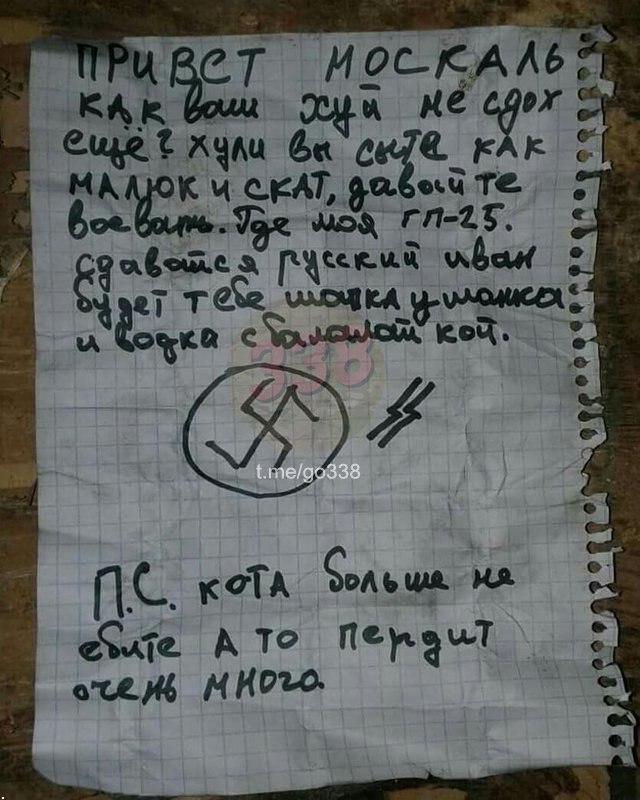 ПРИВЕТ МОСКАЛЬ
КАК ваш хуй не сдох
ещё? хули вы сыте КАК
МАЛЮК и СКАТ, давайте
воевать. Где моя ГП-25.
сдавайся русский иван
будет тебе шапка ушанка
и водка с балалайкой.
338
t.me/go338
П.С. кота больше не
ебите А то пердит
очень много.